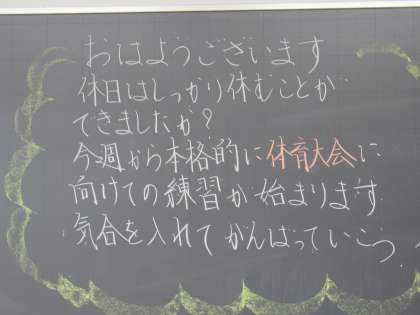 おはようございます
休日はしっかり休むことが
できましたか？
今週から本格的に体育大会に
向けての練習が始まります
気合を入れてがんばっていこう